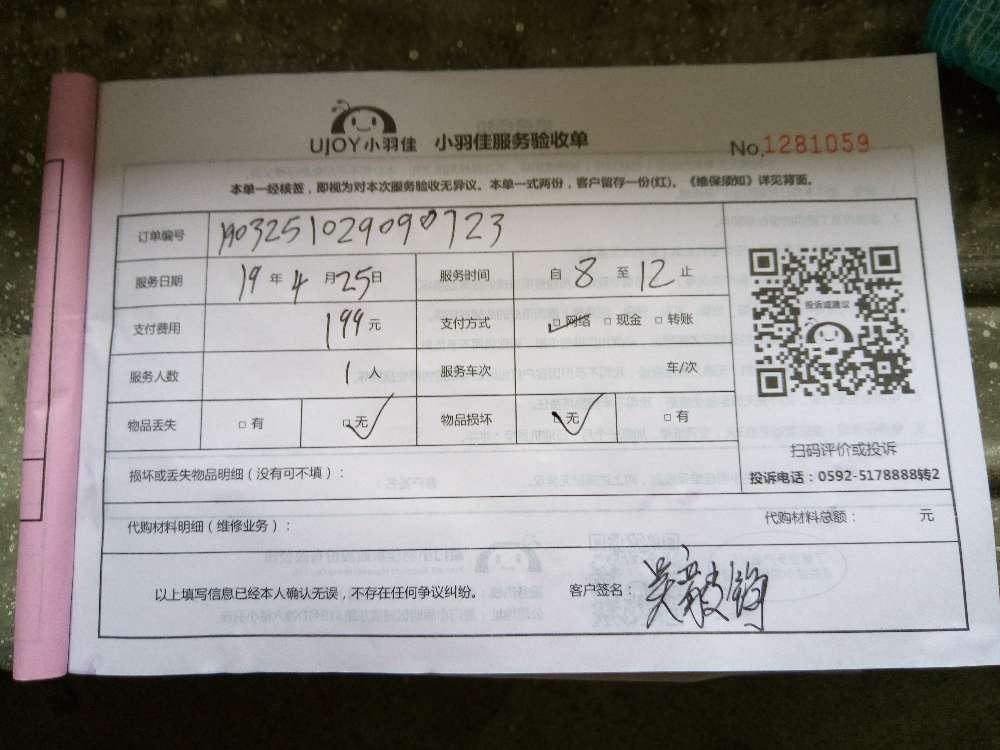 UJOY小羽佳 小羽佳服务验收单 No.1281059
本单一经核签，即视为对本次服务验收无异议。本单一式两份，客户留存一份(红)。《维保须知》详见背面。
订单编号 190325102909 0723
服务日期 19年4月25日 服务时间 自8至12止
支付费用 199元 支付方式 ☑网络 □现金 □转账
服务人数 1人 服务车次 车/次
物品丢失 □有 ☑无 物品损坏 ☑无 □有
投诉或建议
扫码评价或投诉
投诉电话：0592-5178888转2
损坏或丢失物品明细（没有可不填）：
代购材料明细（维修业务）： 代购材料总额： 元
以上填写信息已经本人确认无误，不存在任何争议纠纷。 客户签名：